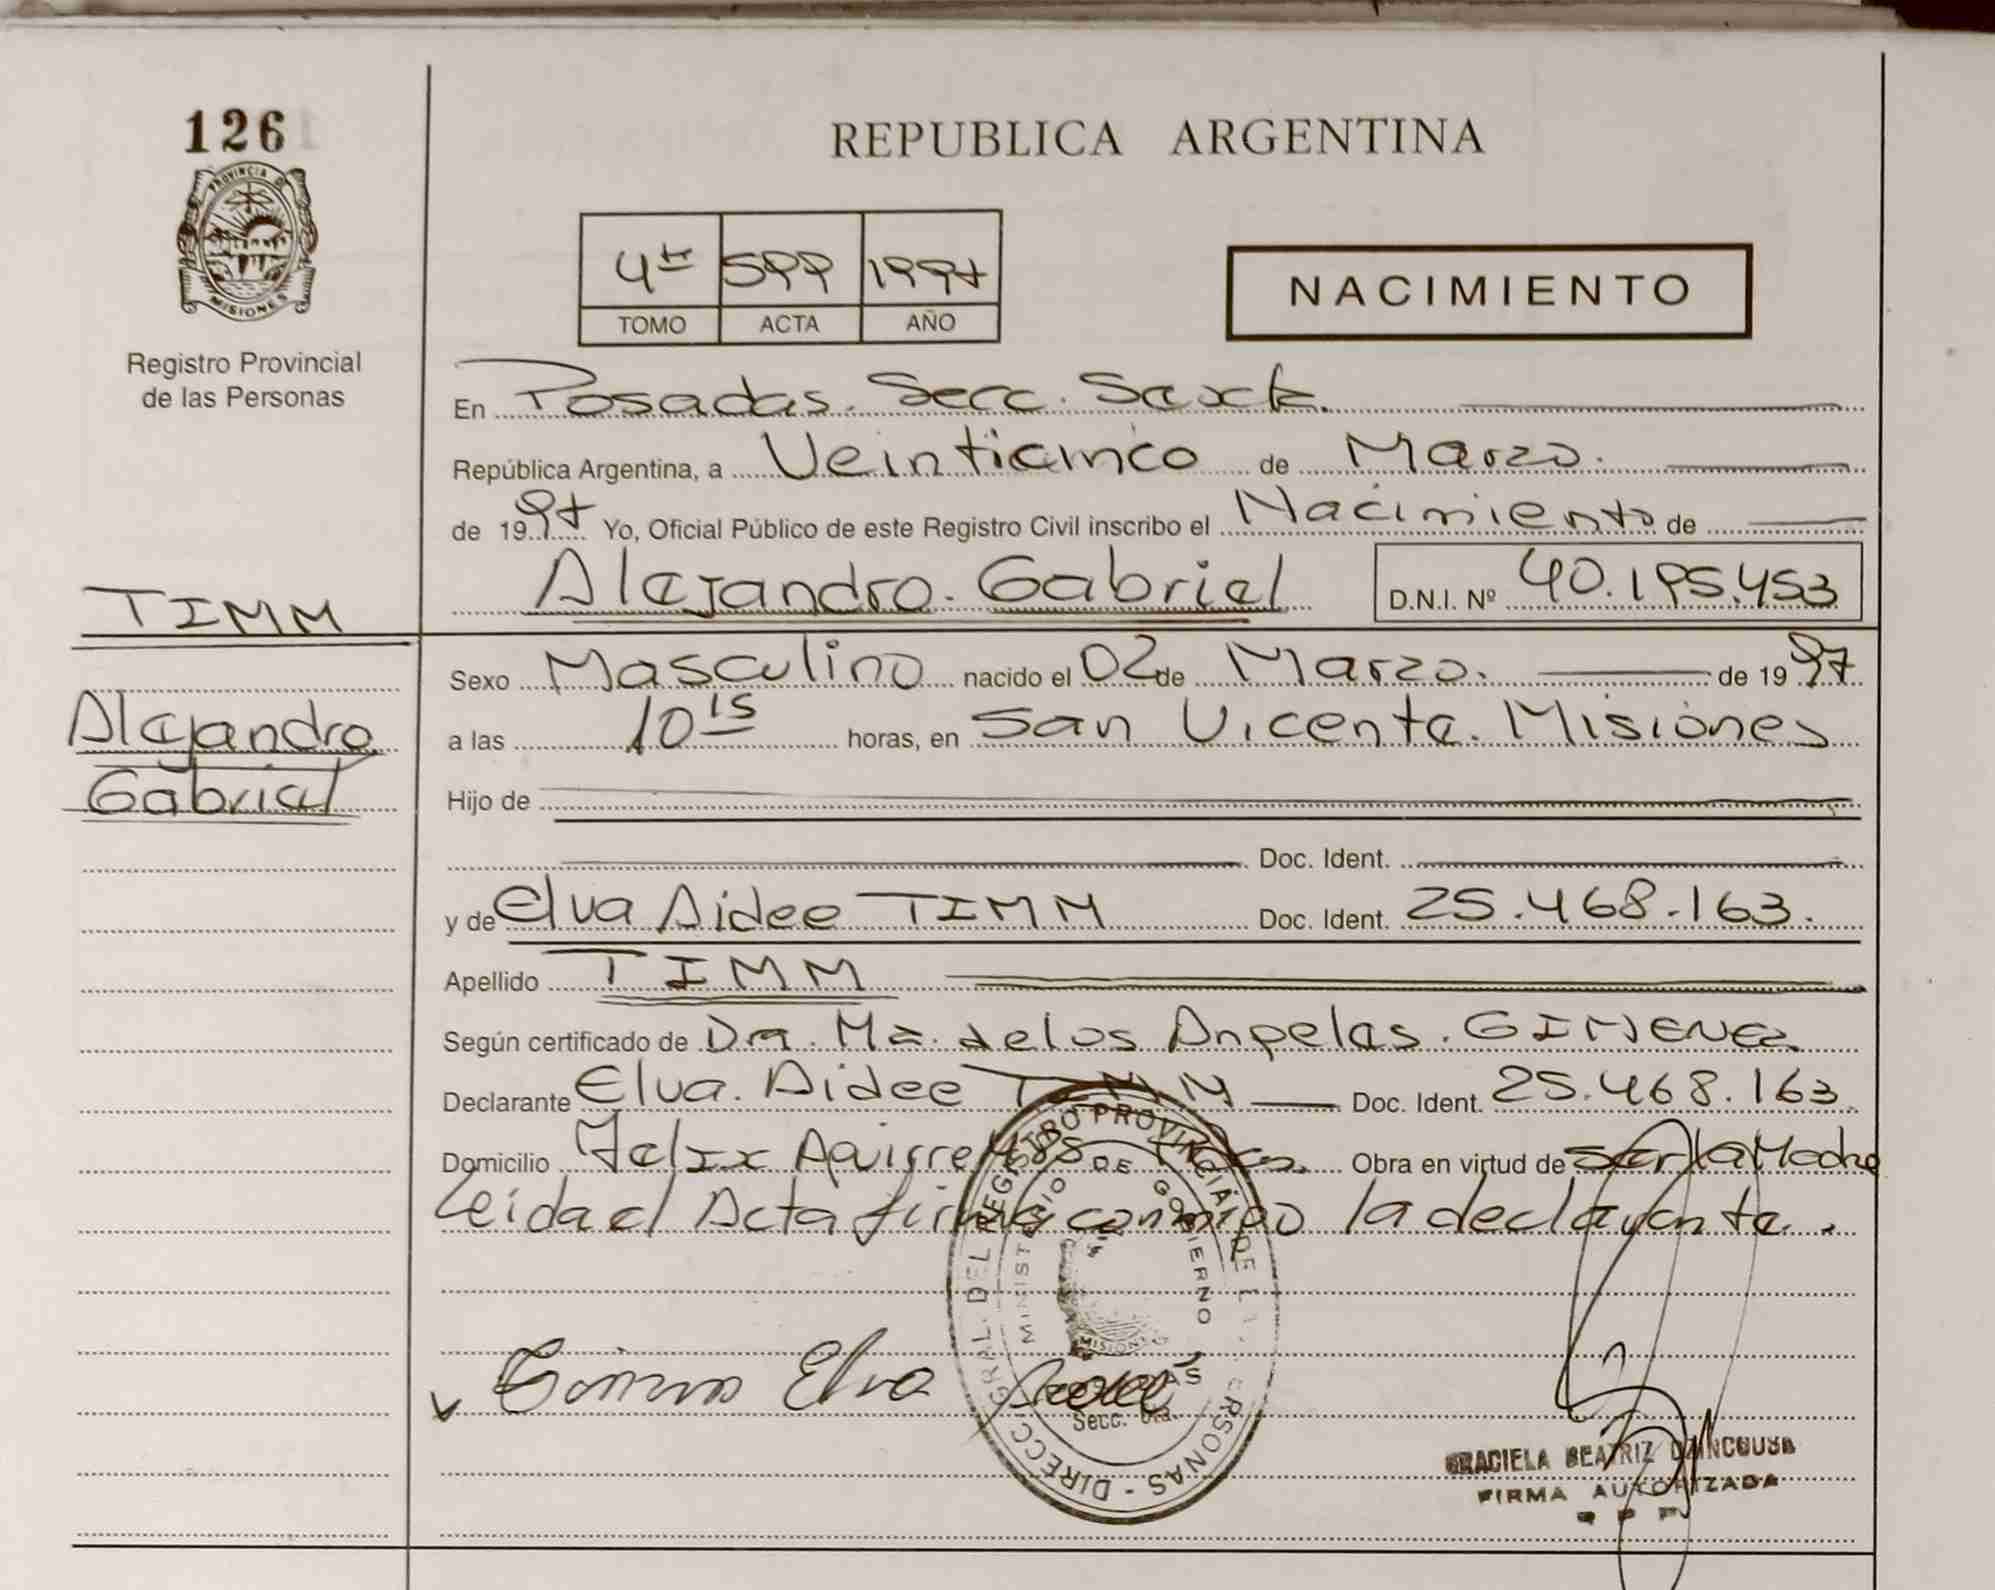 126
REPUBLICA ARGENTINA
PROVINCIA DE
MISIONES
Registro Provincial
de las Personas
4to 599 1997
TOMO ACTA AÑO
NACIMIENTO
En Posadas. Secc. Sexta.
República Argentina, a Veinticinco de Marzo.
de 1997 Yo, Oficial Público de este Registro Civil inscribo el Nacimiento de
Alejandro. Gabriel D.N.I. Nº 40.195.453
TIMM
Alejandro
Gabriel
Sexo Masculino nacido el 02 de Marzo. de 1997
a las 10 15 horas, en San Vicente. Misiones
Hijo de
Doc. Ident.
y de Elva Aidee TIMM Doc. Ident. 25.468.163.
Apellido TIMM
Según certificado de Dra. Ma. de los Angeles. GIMENEZ
Declarante Elva. Aidee TIMM Doc. Ident. 25.468.163.
Domicilio Felix Aguirre 485 Pdas. Obra en virtud de ser la Madre
Leida el Acta firma conmigo la declarante.
DIRECC. GRAL. DEL REGISTRO PROVINCIAL DE LAS PERSONAS
MINISTERIO DE GOBIERNO
MISIONES
POSADAS
Secc. 6ta.
Timm Elva Aidee
GRACIELA BEATRIZ
FIRMA AUTORIZADA
R P P